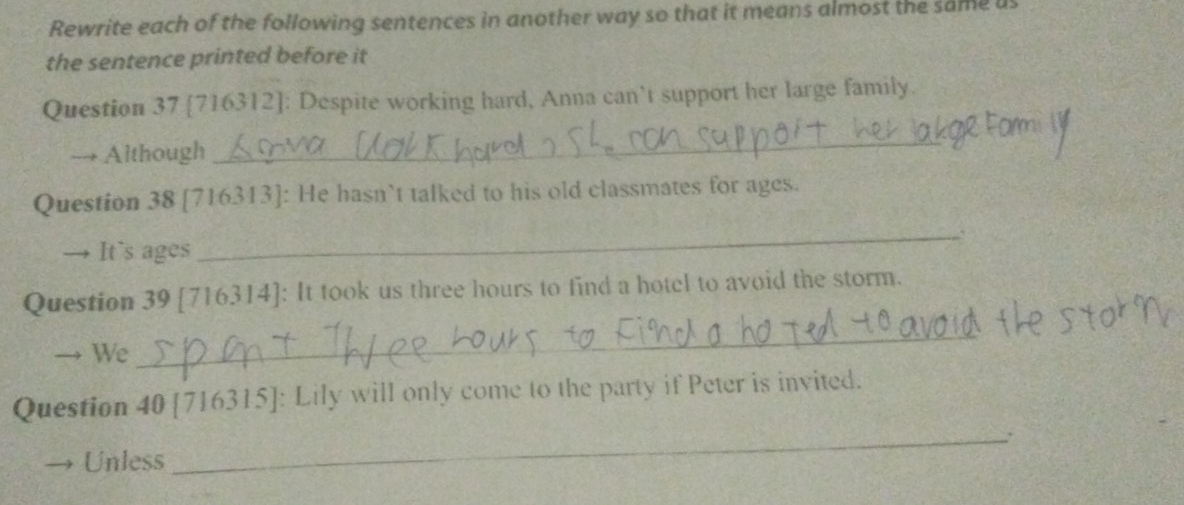 Rewrite each of the following sentences in another way so that it means almost the same as
the sentence printed before it
Question 37 [716312]: Despite working hard, Anna can't support her large family.
→ Although Anna work hard, she can support her large family
Question 38 [716313]: He hasn't talked to his old classmates for ages.
→ It's ages ____.
Question 39 [716314]: It took us three hours to find a hotel to avoid the storm.
→ We spent three hours to find a hoted to avoid the storm
Question 40 [716315]: Lily will only come to the party if Peter is invited.
→ Unless ____.